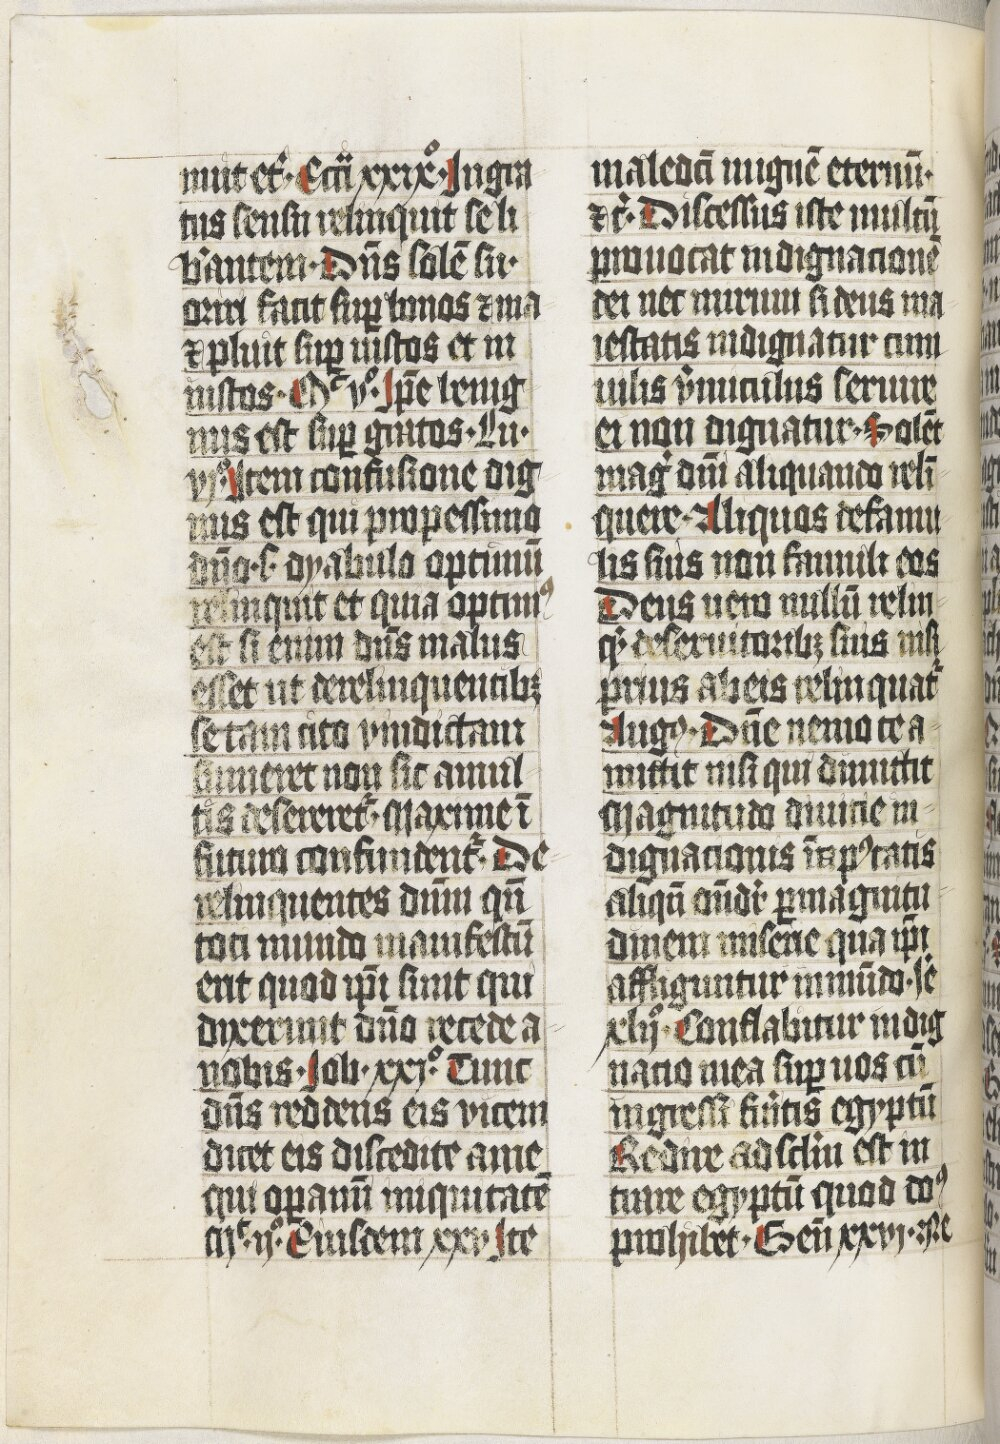 mut etc̄. Ecci xxix.° Ingra
tus sensu relinquit se li
b̄antem. Dn̄s solē su.
oriri facit suꝑ bonos ⁊ ma
⁊ pluit suꝑ iustos et in
iustos. Mᶜ v° Ip̄e benig
nus est suꝑ gratos. Lu.
vj° Item confusione dig
nus est qui pro pessimo
dn̄o .s. dyabulo optimū
relinquit et quia optimꝰ
est si enim dn̄s malus
esset ut derelinquentibꝫ
se tam cito vindictam
sumeret non sic a mul
tis desereret᷑. Maxime ī
futuro confundent᷑. De
relinquentes dn̄m qn̄
toti mundo manifestū
erit quod ip̄i sunt qui
dixerunt dn̄o recede a
nobis. Iob. xxi° Tunc
dn̄s reddens eis vicem
dicet eis discedite a me
qui oꝑamī iniquitatē
Eiusdem xxv Ite
maledcī in ignē eternū.
⁊c̄. Discessus iste multū
prouocat indignacionē
dei nec mirum si deus ma
iestatis indignatur cum
uilis v̄miculus seruire
ei non dignatur. Solēt
mag dn̄i aliquando relī
quere. Aliquos de famu
lis suis non famuli eos
Deus uero nullū relin
qͥ de seruitoribꝫ suis nisi
prius ab eis relinquat᷑
Augꝰ. Dn̄e nemo te a
mittit nisi qui dimittit
Magnitudo diuine in
dignationis
aliqn̄ ꝑ magnitu
dinem miserie qua ip̄i
affliguntur in mūdo. Ie
xlij° Conflabitur indig
natio mea suꝑ uos cū
ingressi fūitis egyptū
Redire ad sclm̄ est in
trare egyptū quod doꝰ
prohibet. Gen̄ xxvj. Ne